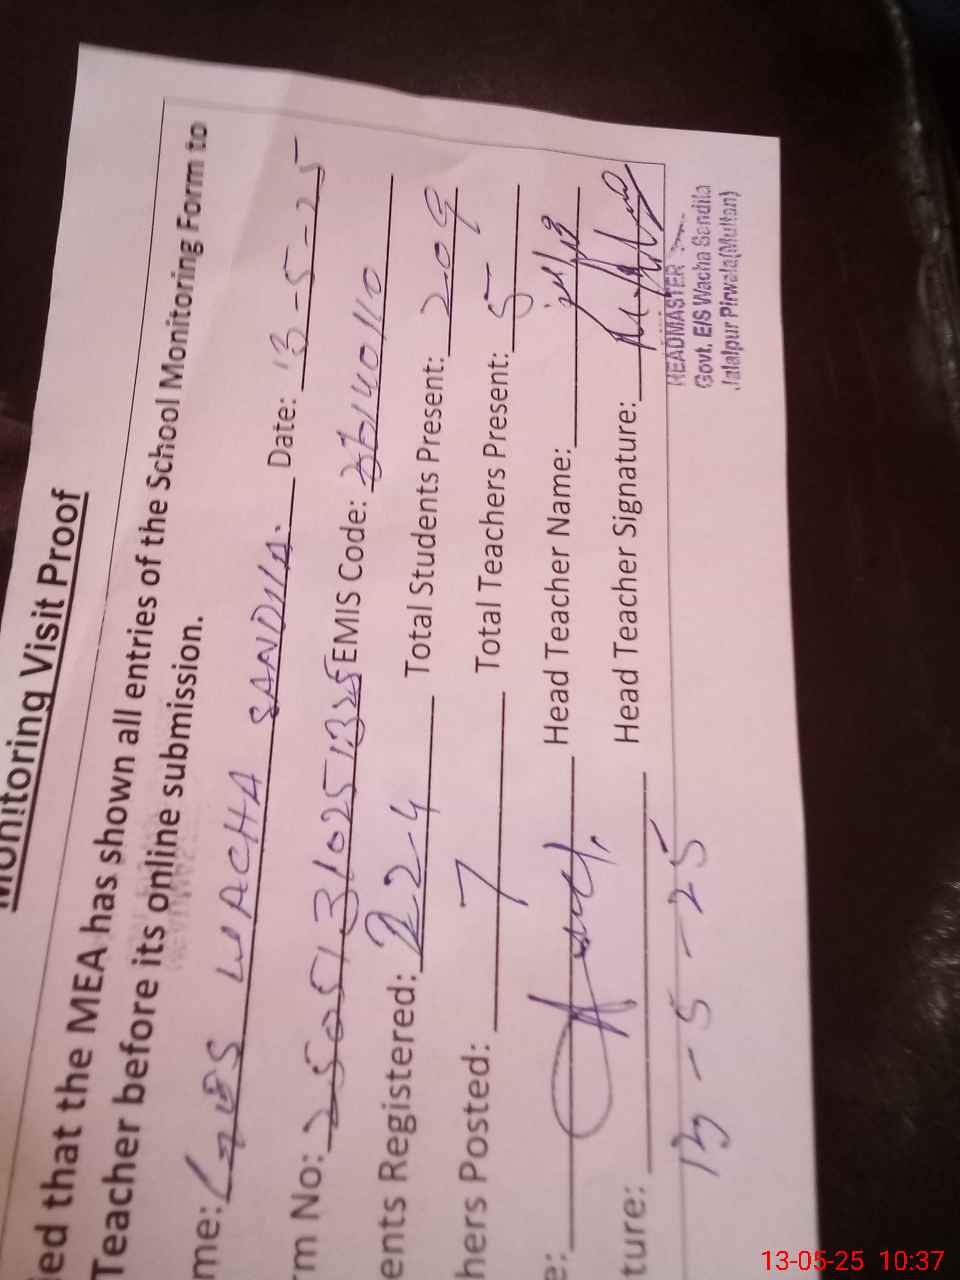 Monitoring Visit Proof
ied that the MEA has shown all entries of the School Monitoring Form to
Teacher before its online submission.
me: GES WACHA SANDILA. Date: 13-5-25
rm No: 25051310251325 EMIS Code: 36140110
ents Registered: 224 Total Students Present: 209
hers Posted: 7 Total Teachers Present: 5
e: Head Teacher Name:
ture: Head Teacher Signature:
13-5-25
HEADMASTER
Govt. E/S Wacha Sandila
Jalalpur Pirwala(Multan)
13-05-25 10:37